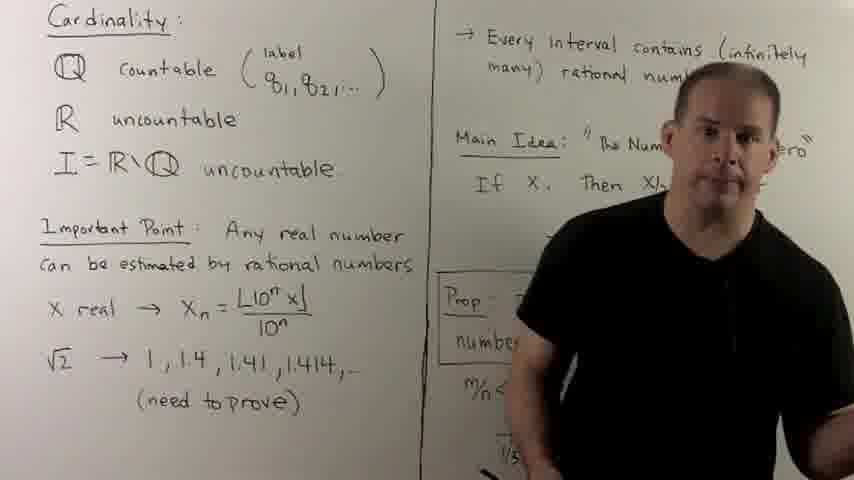 Cardinality:
ℚ countable (label q₁, q₂, ...)
ℝ uncountable
I = ℝ\ℚ uncountable
Important Point: Any real number
can be estimated by rational numbers
x real → xₙ = ⌊10ⁿ x⌋ / 10ⁿ
√2 → 1, 1.4, 1.41, 1.414, ...
(need to prove)
→ Every interval contains (infinitely
many) rational
Main Idea: "The
If x, Then
Prop:
m/n <
1/3